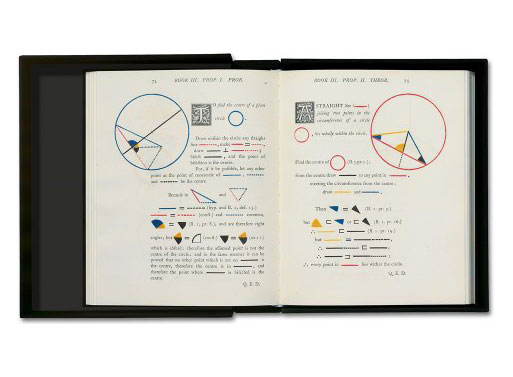 72 BOOK III. PROP. I. PROB.
TO find the centre of a given
circle
Draw within the circle any straight
line , make = ,
draw ⊥ ;
bisect , and the point of
bisection is the centre.
For, if it be possible, let any other
point as the point of concourse of ,
and be the centre.
Because in and
= (hyp. and B. 1, def. 15.)
= (const.) and common,
= (B. 1. pr. 8.), and are therefore right
angles; but = (const.) = (ax. 11.)
which is absurd; therefore the assumed point is not the
centre of the circle; and in the same manner it can be
proved that no other point which is not on is
the centre, therefore the centre is in , and
therefore the point where is bisected is the
centre.
Q. E. D.
BOOK III. PROP. II. THEOR. 73
A STRAIGHT line ( )
joining two points in the
circumference of a circle
, lies wholly within the circle.
Find the centre of (B. 3. pr. 1.);
from the centre draw to any point in ,
meeting the circumference from the centre;
draw and .
Then = (B. 1. pr. 5.)
but ⊏ or ⊏ (B. 1. pr. 16.)
∴ ⊏ (B. 1. pr. 19.)
but = ,
∴ ⊏ ;
∴ ⊐ ;
∴ every point in lies within the circle.
Q. E. D.